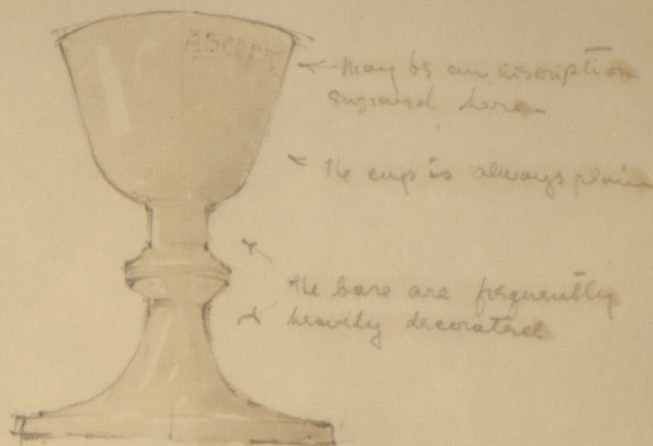 ASCOPT
may be an inscription
engraved here
The cup is always plain
The base are frequently
heavily decorated